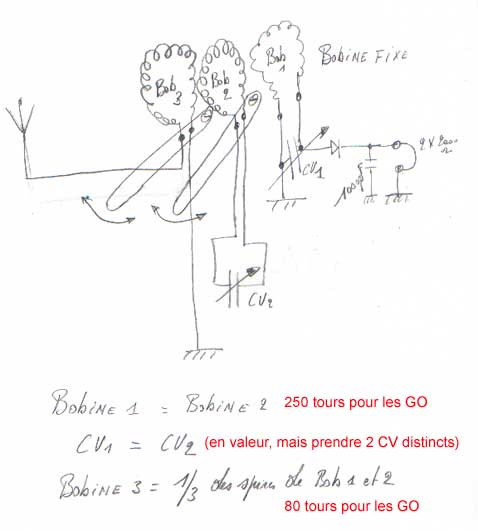 Bob 3
Bob 2
Bob 1
BOBINE FIXE
CV1
10000pf
2 x 2000 Ω
CV2
BOBINE 1 = BOBINE 2 250 tours pour les GO
CV1 = CV2 (en valeur, mais prendre 2 CV distincts)
BOBINE 3 = 1/3 des spires de Bob 1 et 2
80 tours pour les GO